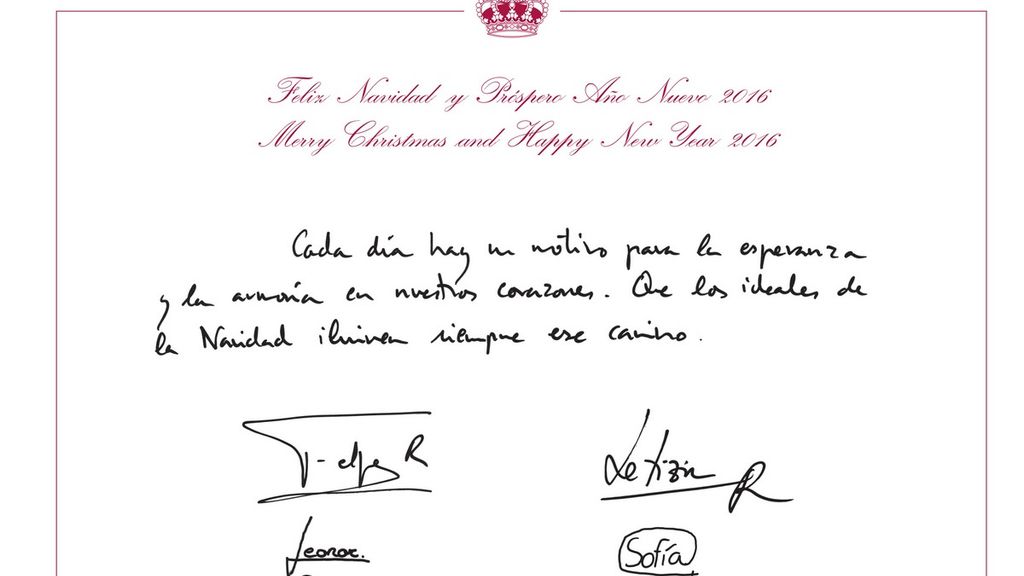 Feliz Navidad y Próspero Año Nuevo 2016
Merry Christmas and Happy New Year 2016
Cada día hay un motivo para la esperanza
y la armonía en nuestros corazones. Que los ideales de
la Navidad iluminen siempre ese camino.
Felipe R
Letizia R
Leonor.
Sofía